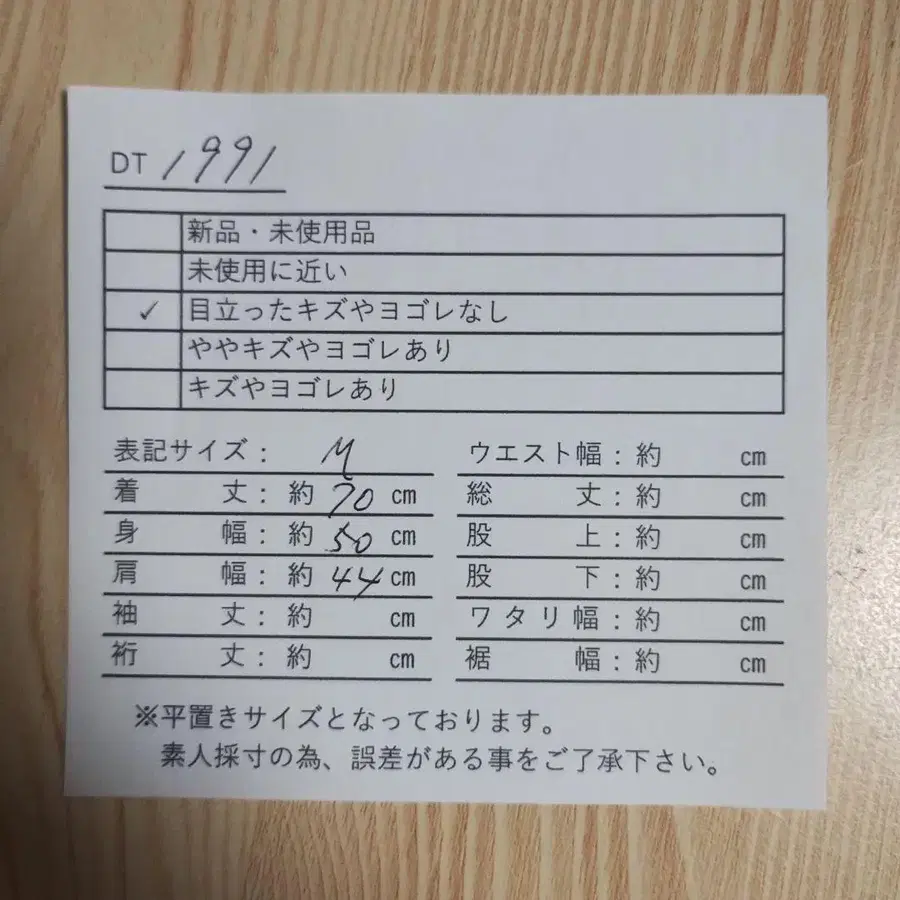 DT 1991
新品・未使用品
未使用に近い
✓ 目立ったキズやヨゴレなし
ややキズやヨゴレあり
キズやヨゴレあり
表記サイズ： M
着 丈：約 70 cm
身 幅：約 50 cm
肩 幅：約 44 cm
袖 丈：約 cm
裄 丈：約 cm
ウエスト幅：約 cm
総 丈：約 cm
股 上：約 cm
股 下：約 cm
ワタリ幅：約 cm
裾 幅：約 cm
※平置きサイズとなっております。
素人採寸の為、誤差がある事をご了承下さい。